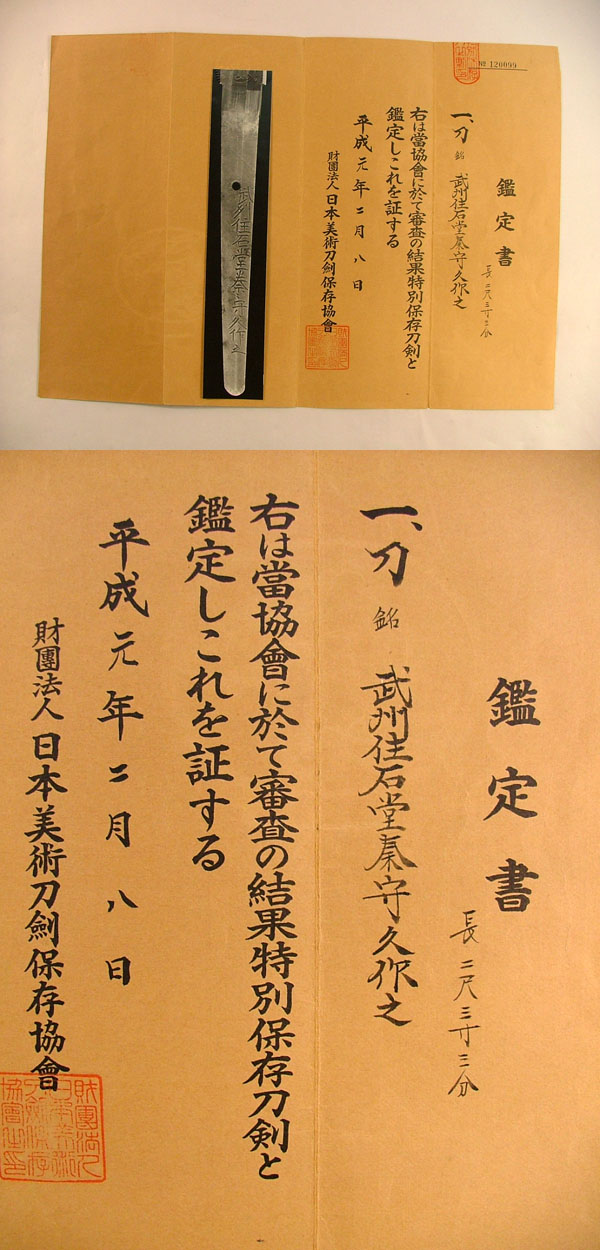 № 120099
鑑定書
長 二尺三寸三分
一、刀 銘 武州住石堂秦守久作之
右は當協會に於て審査の結果特別保存刀剣と
鑑定しこれを証する
平成元年二月八日
財團法人日本美術刀劍保存協會
武州住石堂秦守久作之
鑑定書
長 二尺三寸三分
一、刀 銘 武州住石堂秦守久作之
右は當協會に於て審査の結果特別保存刀剣と
鑑定しこれを証する
平成元年二月八日
財團法人日本美術刀劍保存協會